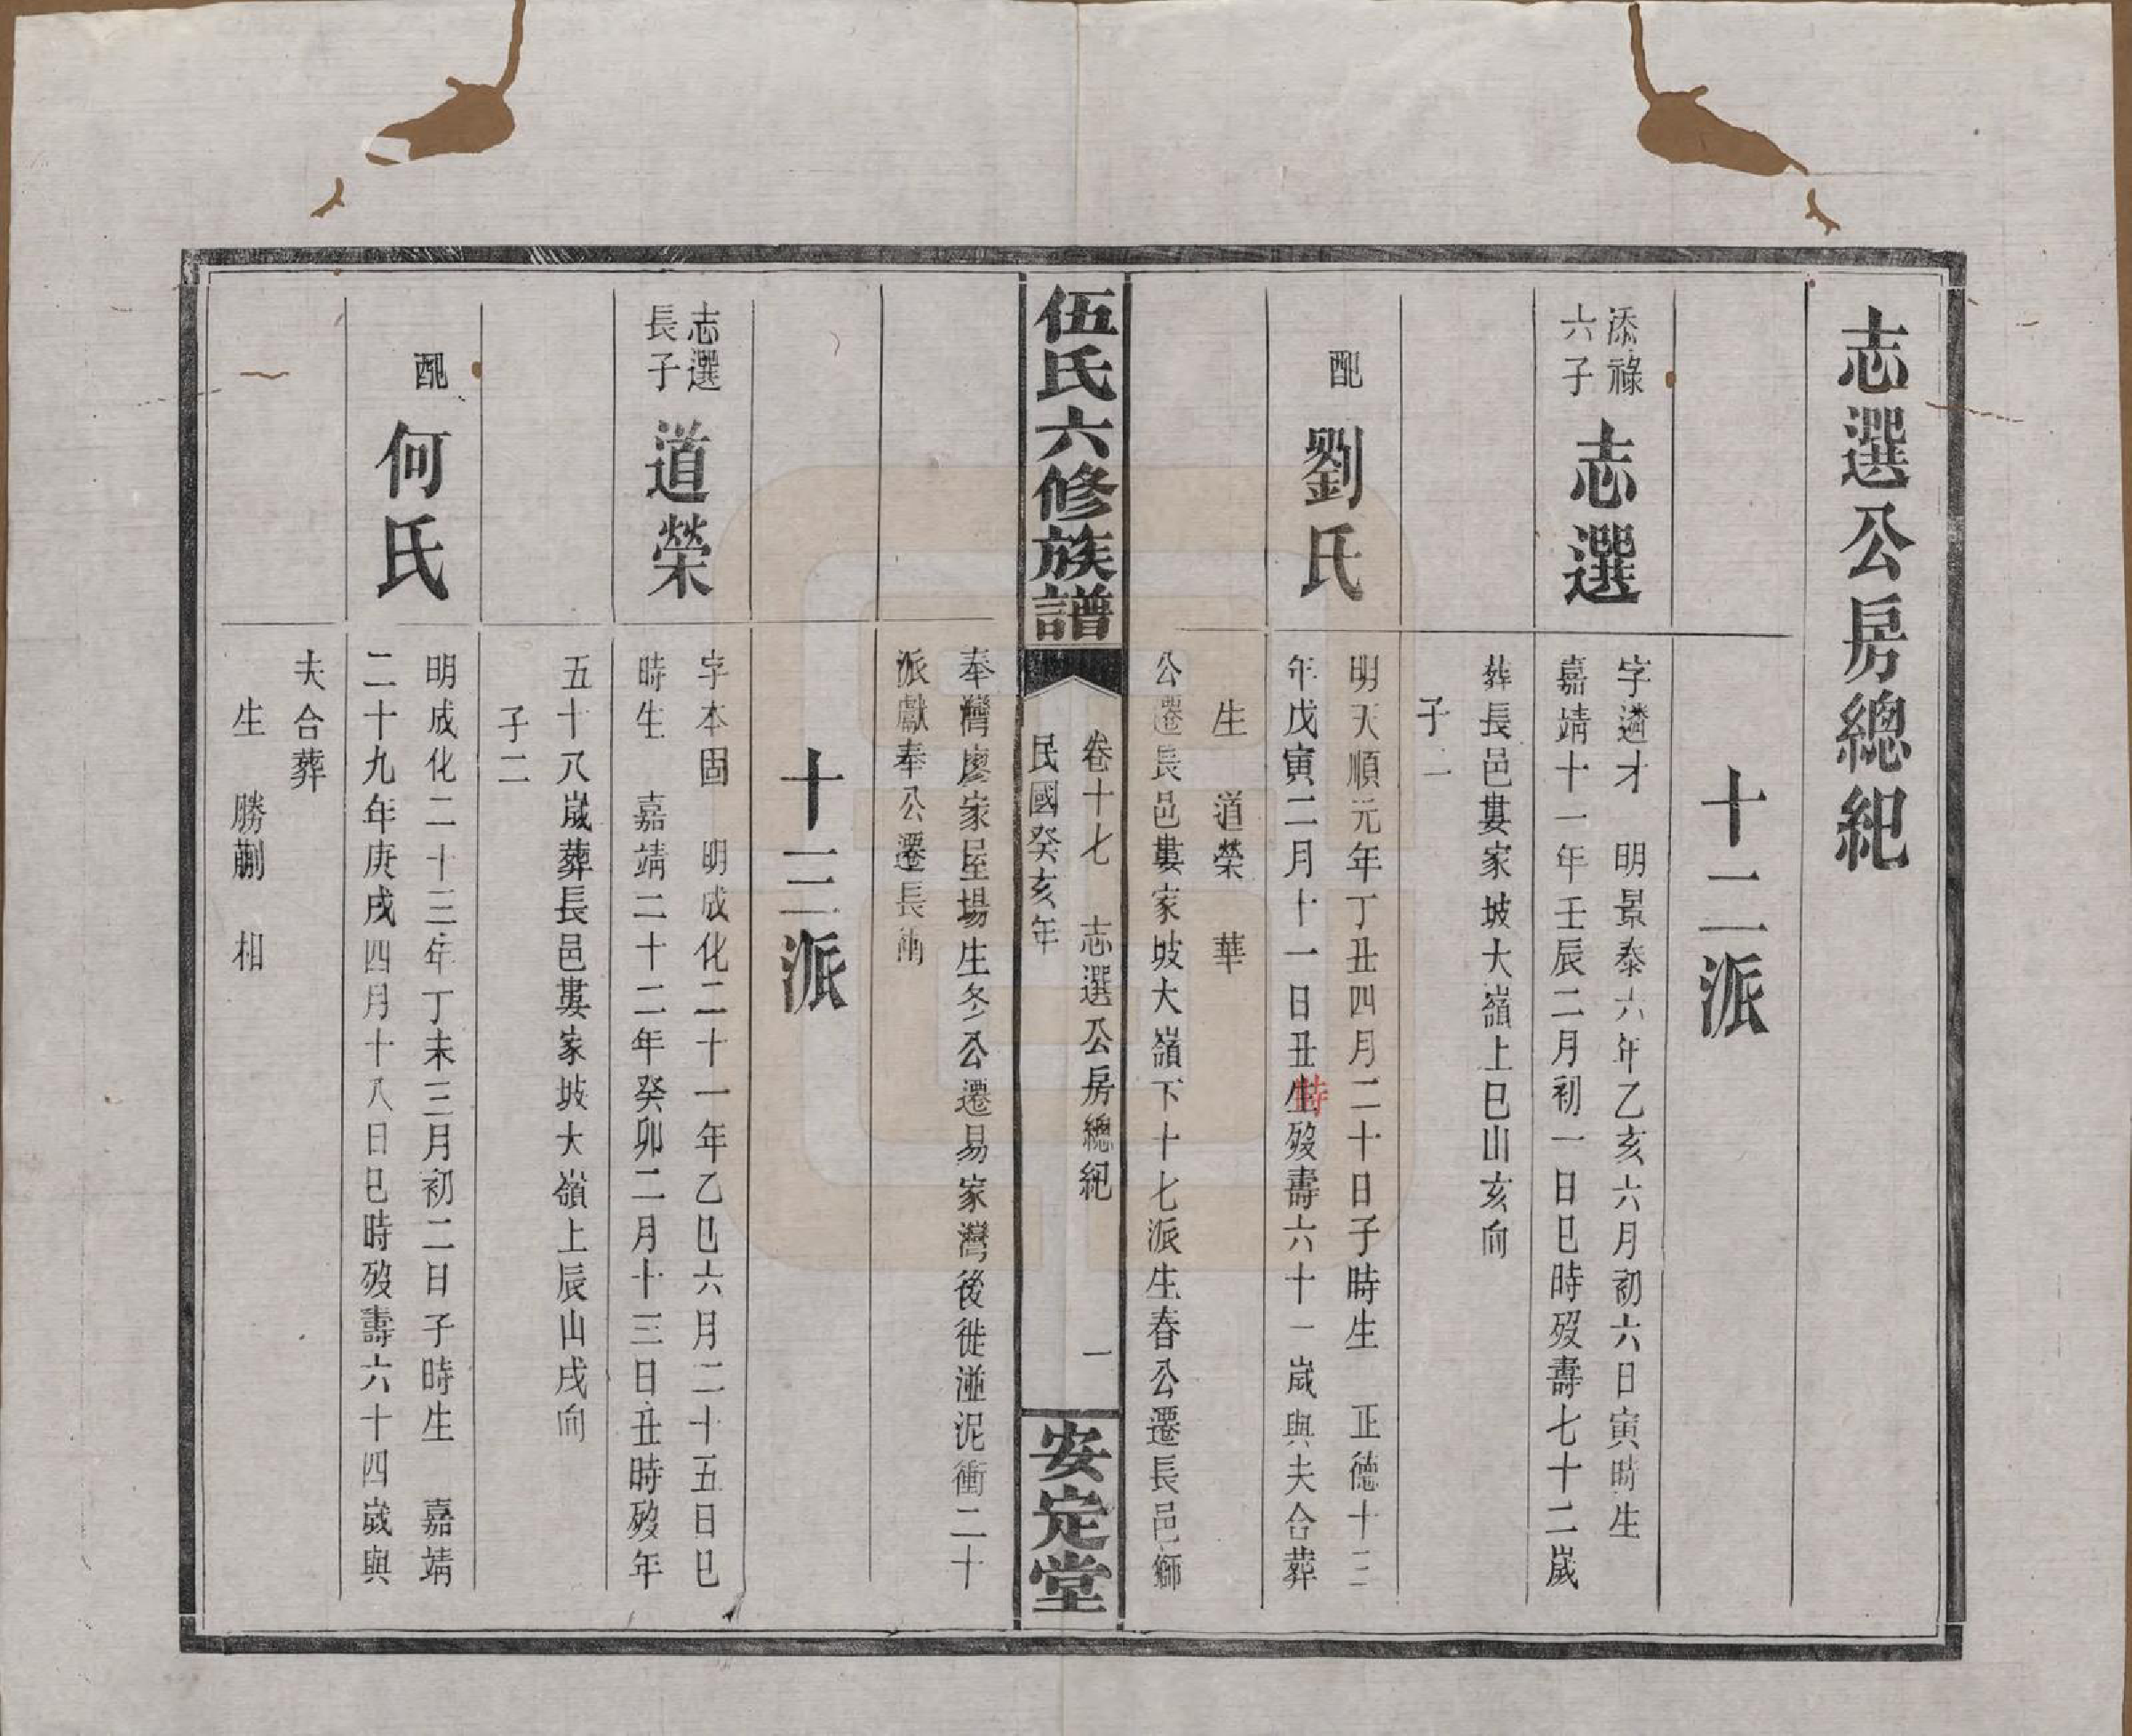 志選公房總紀
十二派
添祿
六子
志選
字遴才　明景泰六年乙亥六月初六日寅時生
嘉靖十一年壬辰二月初一日巳時歿壽七十二歲
葬長邑婁家坡大嶺上巳山亥向
子二
配
劉氏
明天順元年丁丑四月二十日子時生　正德十三
年戊寅二月十一日丑生歿壽六十一歲與夫合葬
時
生　道榮　華
公遷長邑婁家坡大嶺下十七派生春公遷長邑鄉
伍氏六修族譜
卷十七　志選公房總紀　一
民國癸亥年
安定堂
奉灣廖家屋場生冬公遷易家灣後徙湴泥衝二十
派獻奉公遷長南
十三派
志選
長子
道榮
字本固　明成化二十一年乙巳六月二十五日巳
時生　嘉靖二十二年癸卯二月十三日丑時歿年
五十八歲葬長邑婁家坡大嶺上辰山戌向
子二
配
何氏
明成化二十三年丁未三月初二日子時生　嘉靖
二十九年庚戌四月十八日巳時歿壽六十四歲與
夫合葬
生　勝蒯　相